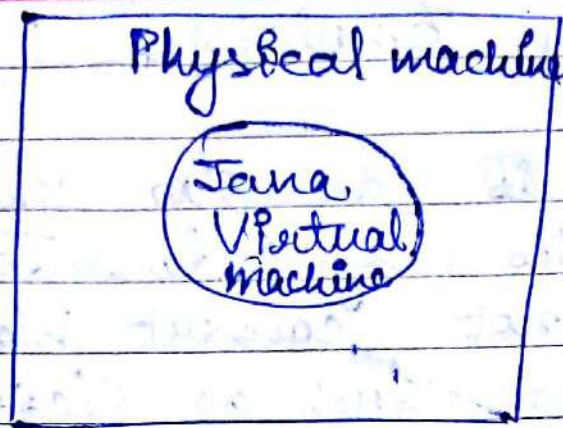 Physical machine
Java
Virtual
machine